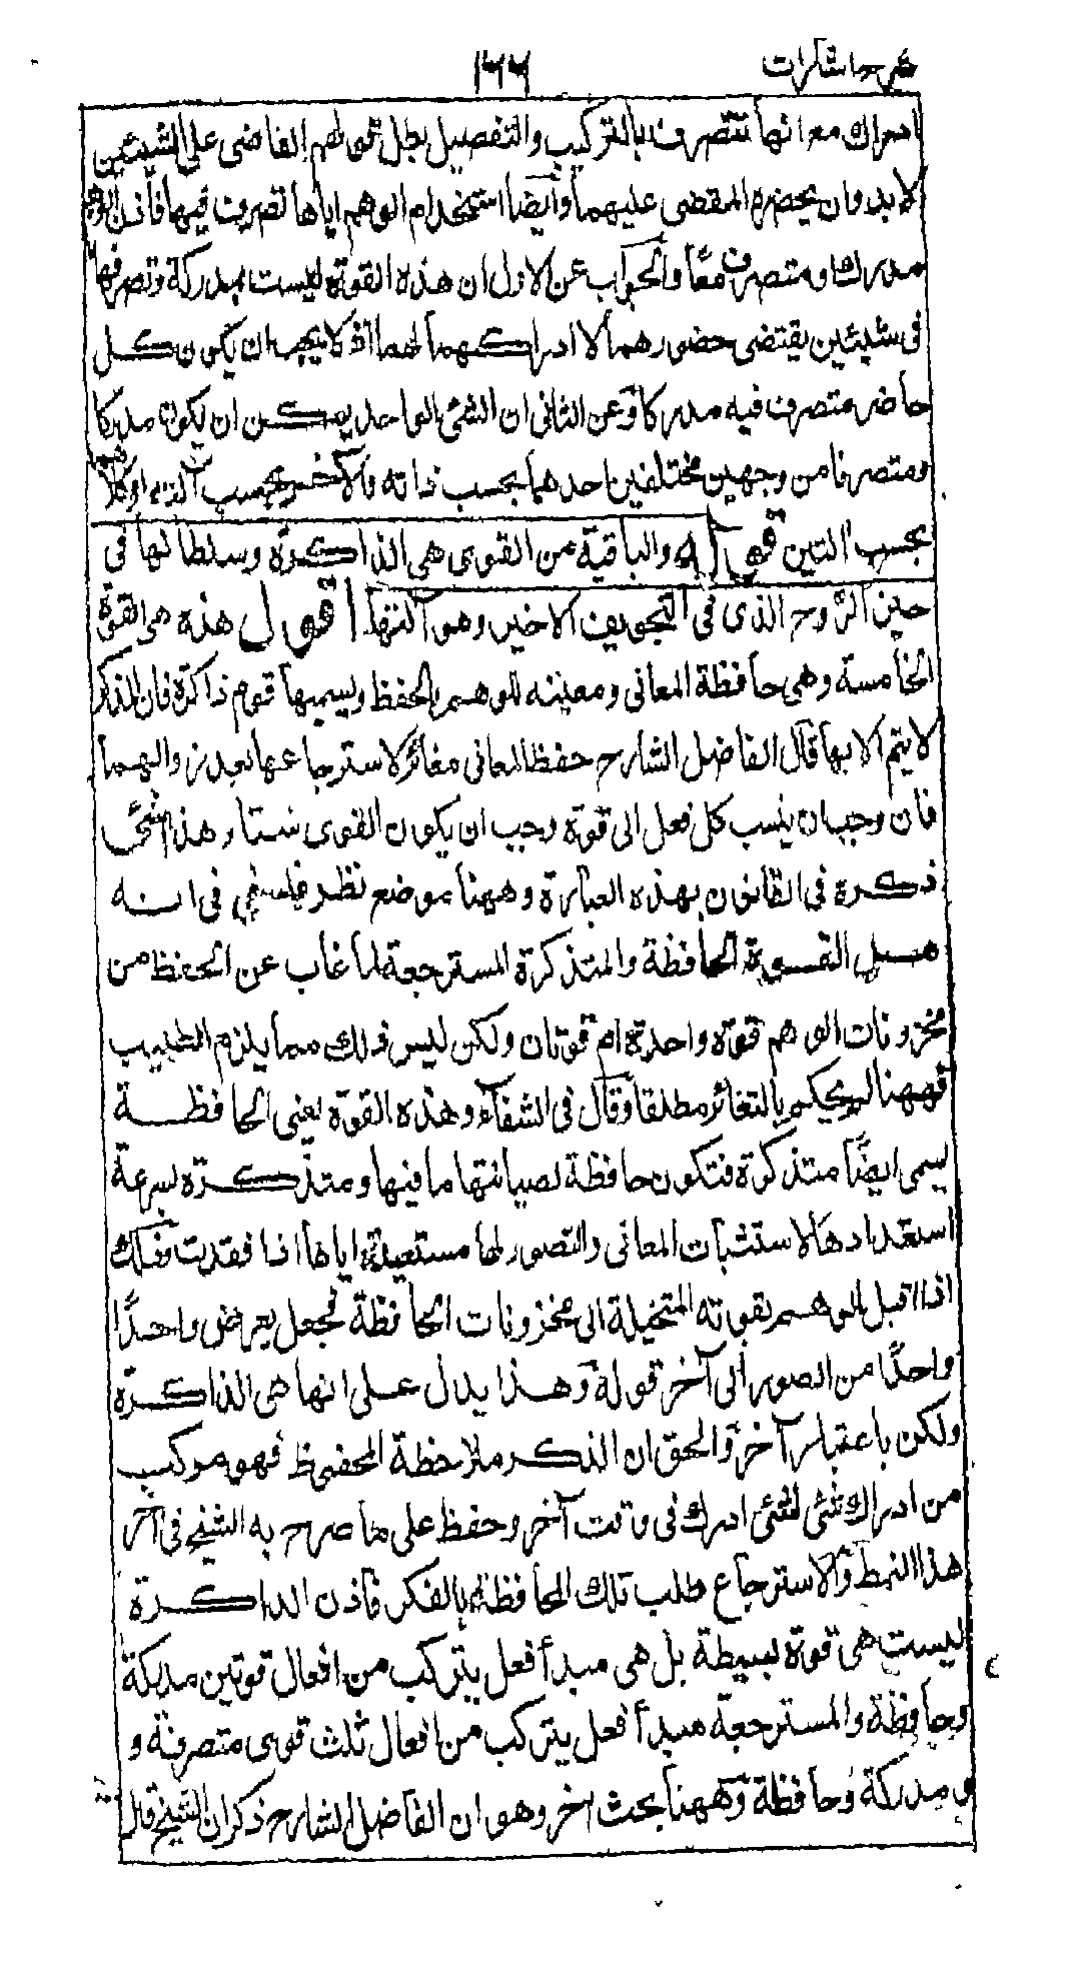 شرح اشارات ١٦٦
ادراك مع انها تتصرف بالتركيب والتفصيل بطل قولهم القاضى على الشيئين
لا بد وان يحضره المقضى عليهما وايضا استخدام الوهم اياها تصرف فيها فاذن الوهم
مدرك ومتصرف معا والجواب عن الاول ان هذه القوة ليست بمدركة وتصرفها
فى شيئين يقتضى حضورهما لا ادراكهما لهما اذ لا يجب ان يكون كل
حاضر متصرف فيه مدركا وعن الثانى ان الشئ الواحد يمكن ان يكون مدركا
ومتصرفا من وجهين مختلفين احدهما بحسب ذاته والآخر بحسب آلته او كلاهما
بحسب آلتين قوله والباقية من القوى هى الذاكرة وسلطانها فى
حيز الروح الذى فى التجويف الاخير وهو آلتها اقول هذه هى القوة
الخامسة وهى حافظة المعانى ومعينه للوهم بالحفظ ويسميها قوم ذاكرة فان الذكر
لا يتم الا بها قال الفاضل الشارح حفظ المعانى مغائر لاسترجاعها بعد زوالهما
فان وجب ان ينسب كل فعل الى قوة وجب ان يكون القوى ستا وهذا شئ
ذكره فى القانون بهذه العبارة وههنا موضع نظر فلسفى فى انه
هل القوة الحافظة والمتذكرة المسترجعة لما غاب عن الحفظ من
مخزونات الوهم قوة واحدة ام قوتان ولكن ليس ذلك مما يلزم الطبيب
فههنا لم يحكم بالتغائر مطلقا وقال فى الشفاء وهذه القوة يعنى الحافظة
يسمى ايضا متذكرة فتكون حافظة لصيانتها ما فيها ومتذكرة لسرعة
استعدادها لاستثبات المعانى والتصور لها مستعيدة اياها اذا فقدت وذلك
اذا اقبل الوهم بقوته المتخيلة الى مخزونات الحافظة فجعل يعرض واحدا
واحدا من الصور الى آخر قوله وهذا يدل على انها هى الذاكرة
ولكن باعتبار آخر والحق ان الذكر ملاحظة المحفوظ فهو مركب
من ادراك شئ لشئ ادرك فى وقت آخر وحفظ على ما صرح به الشيخ فى آخر
هذا النمط والاسترجاع طلب تلك الحافظة بالفكر فاذن الذاكرة
ليست هى قوة بسيطة بل هى مبدأ فعل يتركب من افعال قوتين مدركة
وحافظة والمسترجعة مبدأ فعل يتركب من افعال ثلث قوى متصرفة و
و مدركة وحافظة وههنا بحث آخر وهو ان الفاضل الشارح ذكر ان الشيخ قال